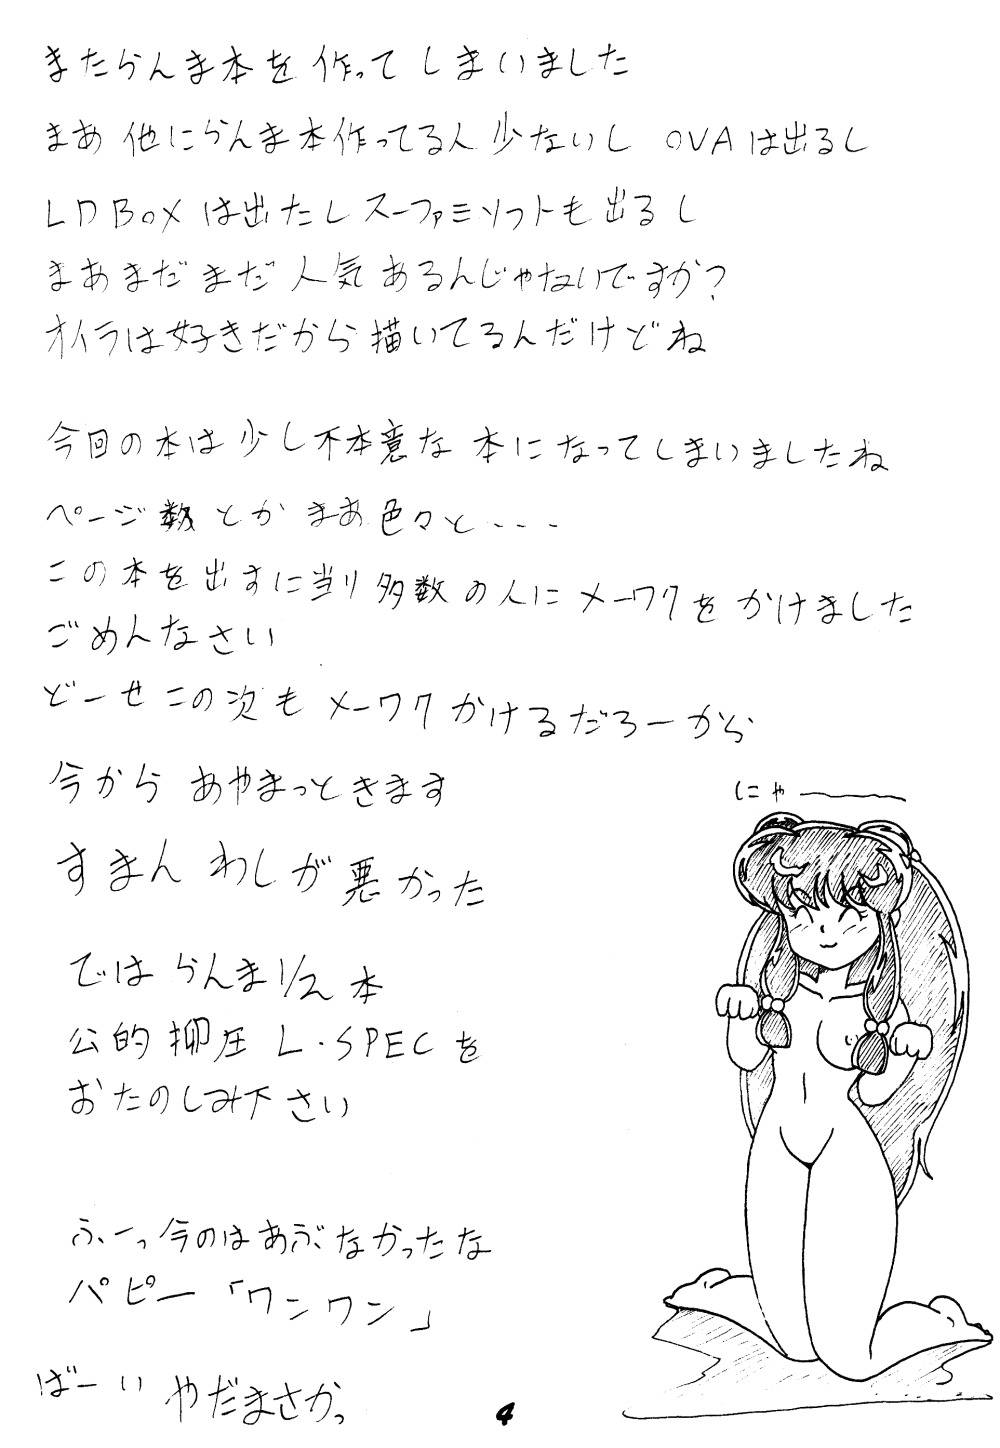 またらんま本を作ってしまいました
まあ 他にらんま本作ってる人少ないし OVAは出るし
LD BOXは出たし スーファミソフトも出るし
まあまだまだ 人気あるんじゃないですか?
オイラは好きだから描いてるんだけどね
今回の本は少し不本意な本になってしまいましたね
ページ数とか まあ色々と---
この本を出すに当り多数の人にメーワクをかけました
ごめんなさい
どーせこの次もメーワクかけるだろーから
今から あやまっときます
すまん わしが悪かった
では らんま1/2本
公的抑圧 L・SPECを
おたのしみ下さい
ふーっ今のはあぶなかったな
パピー「ワンワン」
ばーい やだまさかっ
にゃーーー
4